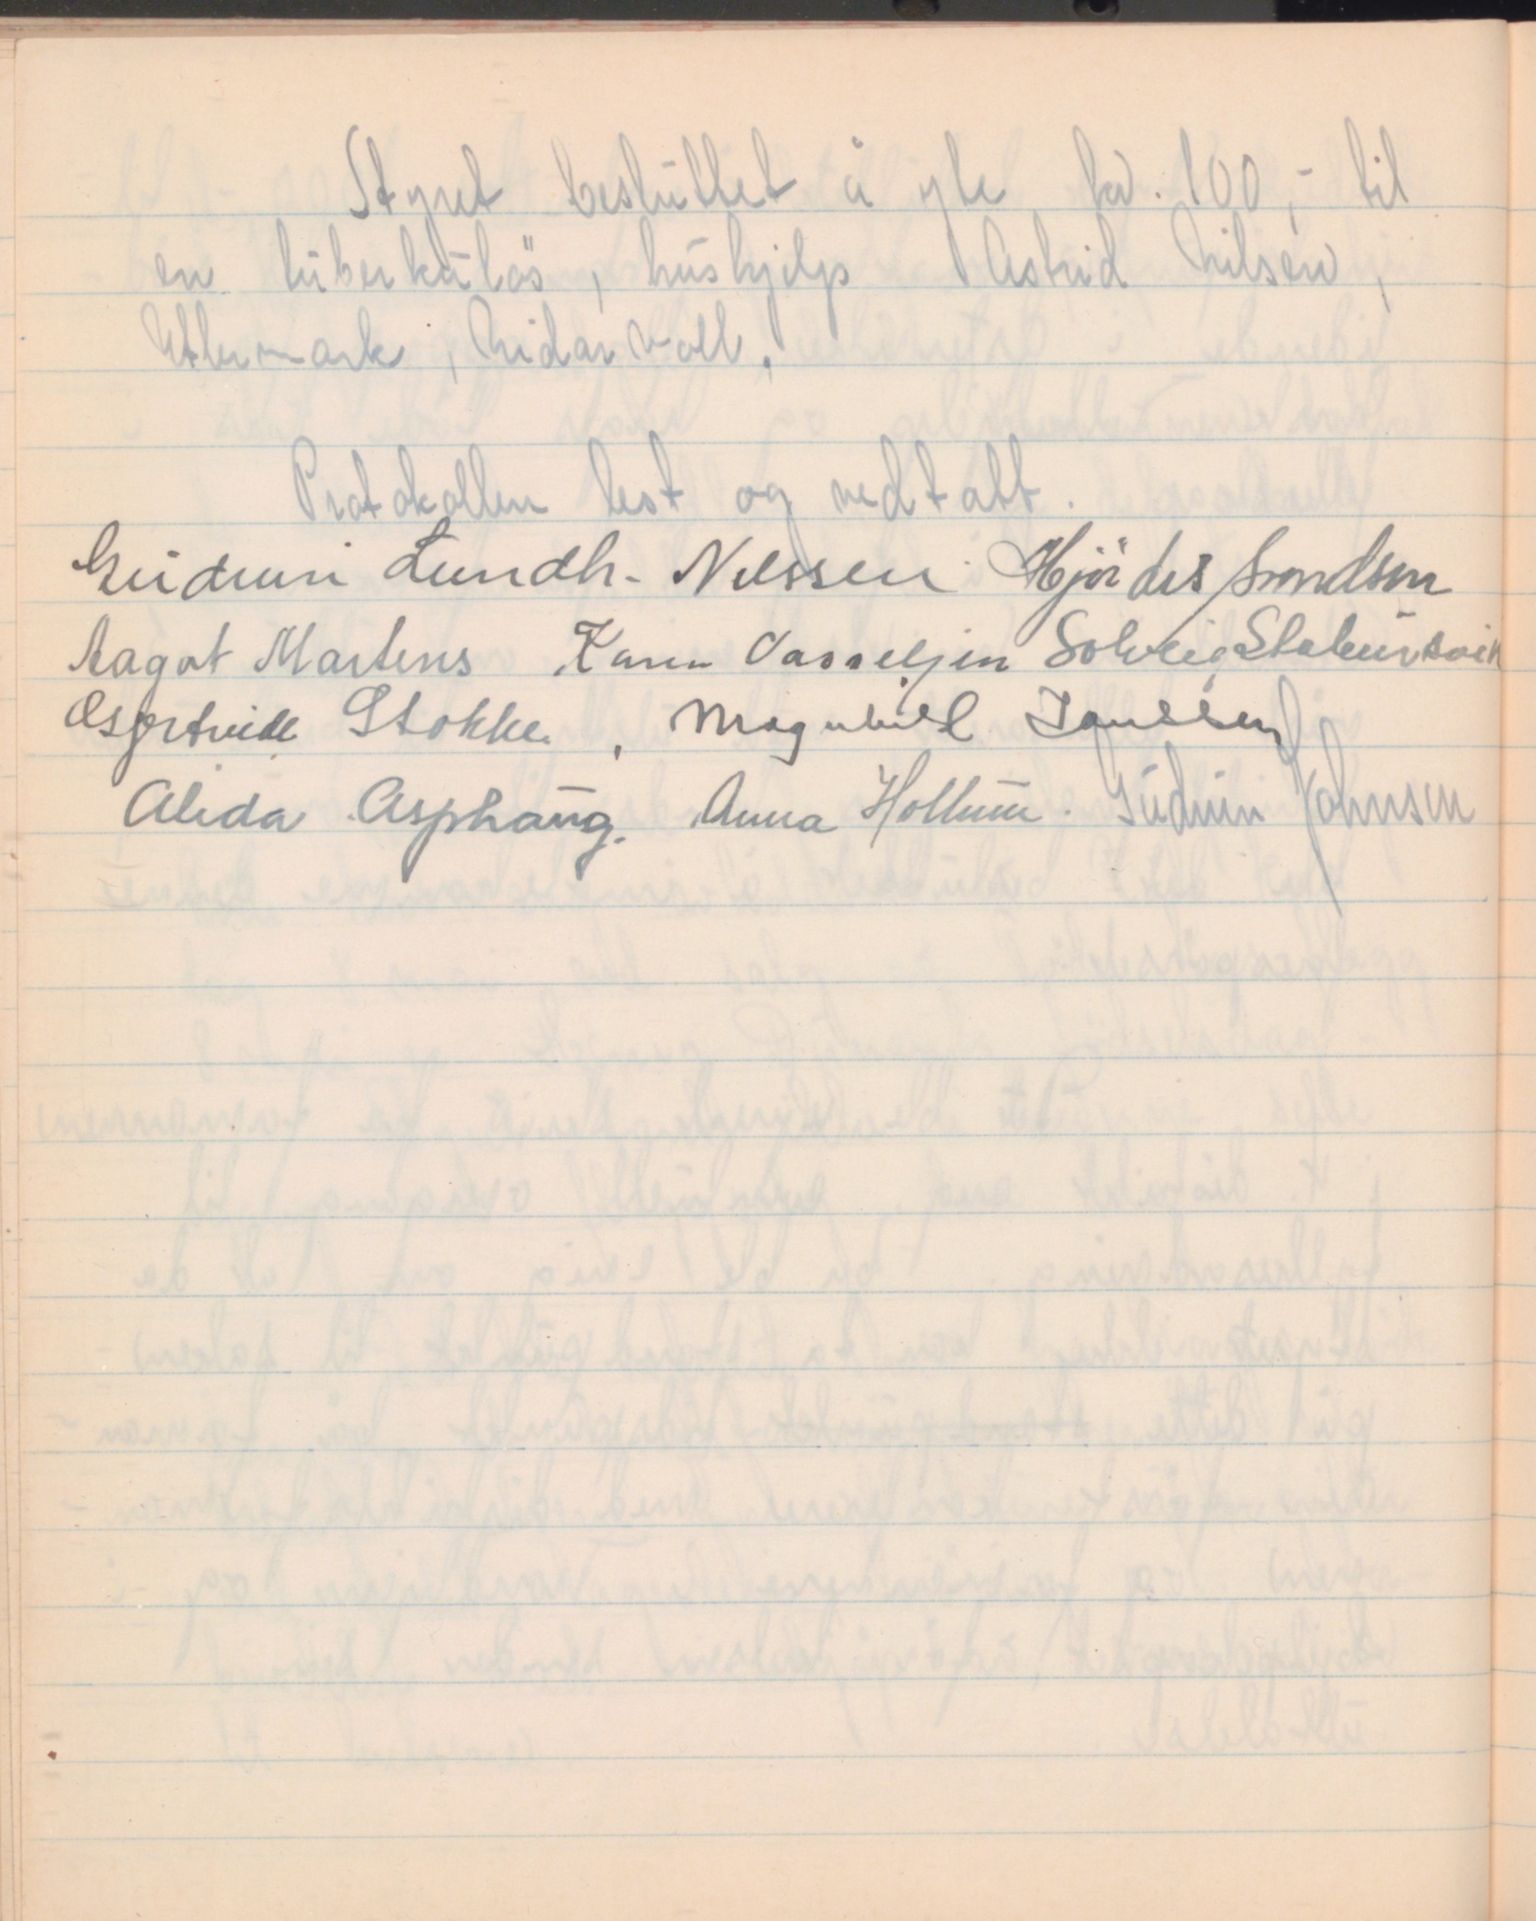 Styret besluttet å yte kr. 100,- til
en tuberkuløs, hushjelp Astrid Nilsen,
Utlermark, Nidarvoll.
Protokollen lest og vedtatt.
Gudrun Lundh-Nilssen Hjördis
Aagot Martens Karen Vasseljen Solveig Stabursvik
Stokke, Magnhild Paulsen
Alida Asphaug. Anna Hollum. Gudrun Johnsen